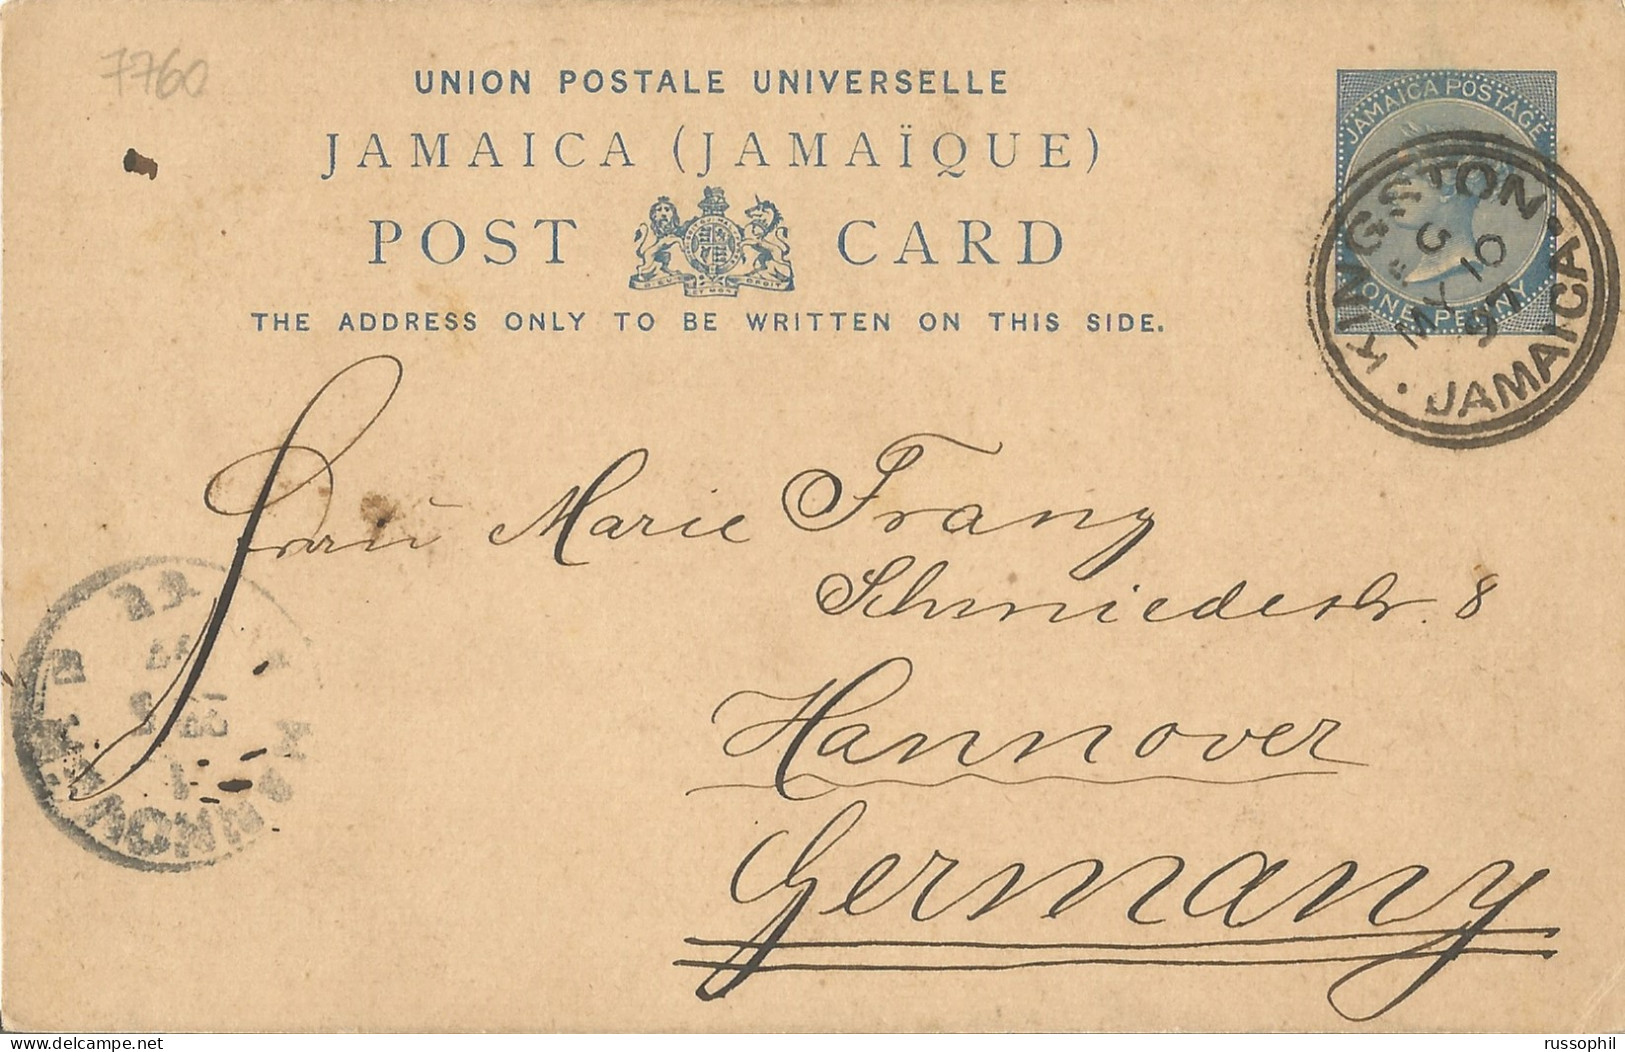 7760
UNION POSTALE UNIVERSELLE
JAMAICA (JAMAÏQUE)
POST CARD
THE ADDRESS ONLY TO BE WRITTEN ON THIS SIDE.
JAMAICA POSTAGE
ONE PENNY
KINGSTON
MY 10
97
JAMAICA
Frau Marie Franz
Schmiedestr. 8
Hannover
Germany
HANNOVER
russophil
delcampe.net